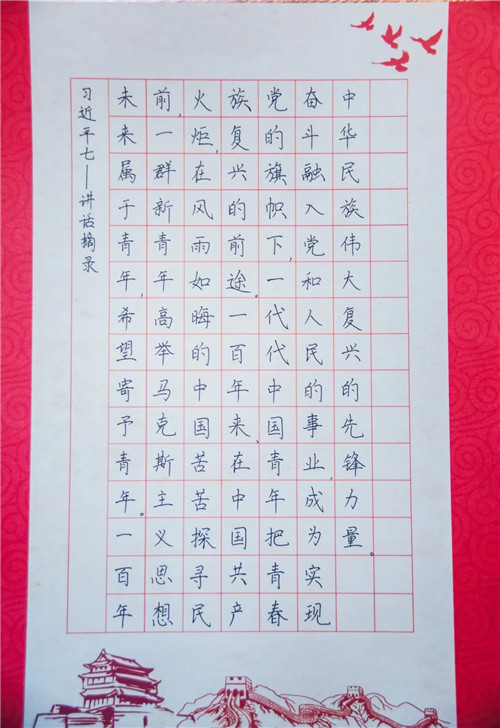 习近平七一讲话摘录
未来属于青年,希望寄予青年。一百年
前,一群新青年高举马克斯主义思想
火炬,在风雨如晦的中国苦苦探寻民
族复兴的前途。一百年来,在中国共产
党的旗帜下,一代代中国青年把青春
奋斗融入党和人民的事业,成为实现
中华民族伟大复兴的先锋力量。